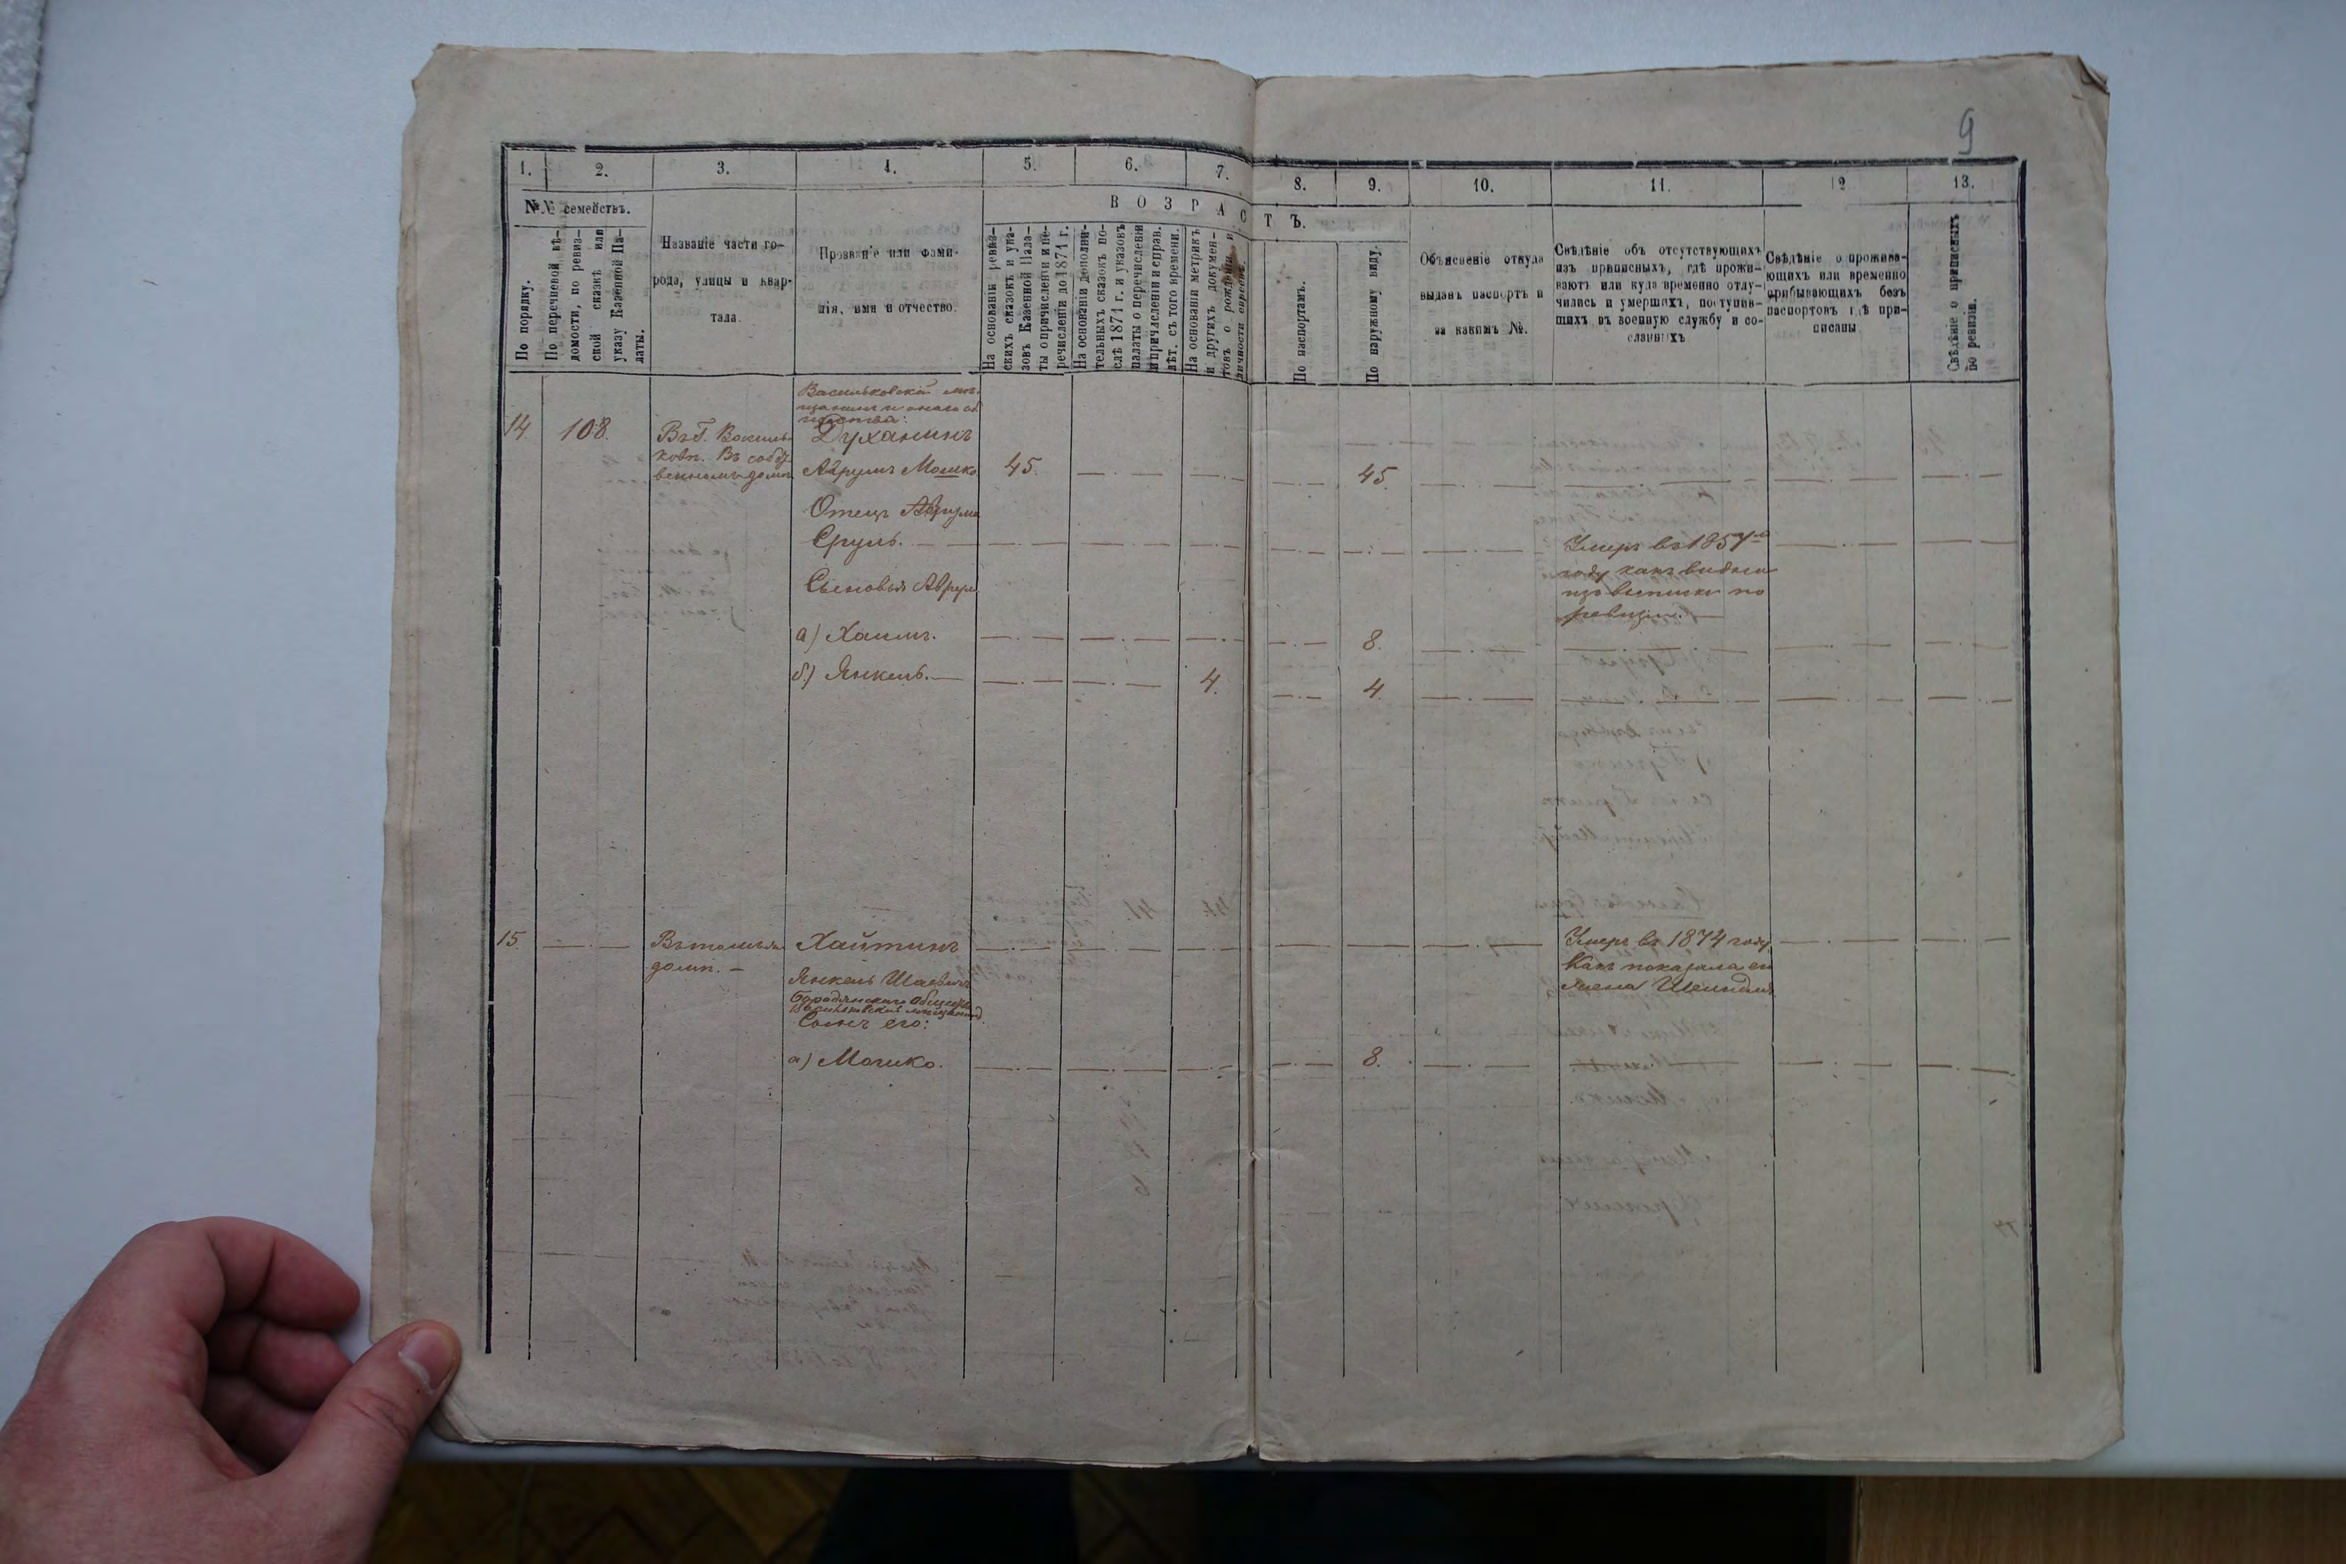 9
1. 2. 3. 4. 5. 6. 7. 8. 9. 10. 11. 12 13.
№№ семействъ.
В О З Р А С Т Ъ.
По порядку.
По перечневой вѣ-
домости, по ревиз-
ской сказкѣ или
указу Казенной Па-
латы.
Названіе части го-
рода, улицы и квар-
тала.
Прозваніе или фами-
лія, имя и отчество.
На основаніи ревиз-
скихъ сказокъ и ука-
зовъ Казенной Пала-
ты о причисленіи и пе-
речисленіи до 1871 г.
На основаніи дополни-
тельныхъ сказокъ по-
слѣ 1871 г. и указовъ
палаты о перечисленіи
и причисленіи и справ.
лѣт. съ того времени.
На основаніи метрикъ
и другихъ докумен-
товъ о рожденіи и
По паспортамъ.
По наружному виду.
Объясненіе откуда
выданъ паспортъ и
за какимъ №.
Свѣдѣніе объ отсутствующихъ
изъ приписныхъ, гдѣ прожи-
ваютъ или куда временно отлу-
чились и умершихъ, поступив-
шихъ въ военную службу и со-
сланныхъ
Свѣдѣніе о прожива-
ющихъ или временно
прибывающихъ безъ
паспортовъ гдѣ при-
писаны
Свѣдѣніе о приписныхъ
по ревизіи.
Васильковскій мѣ-
щанинъ и онаго об
щества:
14. 108. Въ Г. Василь- Духанинъ
ковѣ. Въ собст
венномъ домѣ Аврумъ Мошко 45. 45.
Отецъ Аврума
Сруль. Умеръ въ 1857мъ
году какъ видно
изъ выписки по
ревизіи.
Сыновья Аврум
а) Хаимъ. 8.
б.) Янкель. 4. 4.
15. Въ томъ же Хайтинъ Умеръ въ 1874 году,
домѣ. Какъ показала его
Янкель Шаевичъ жена Шейндля
Бородянскаго Общества
Васильковскій мѣщанинъ
Сынъ его:
а) Мошко. 8.